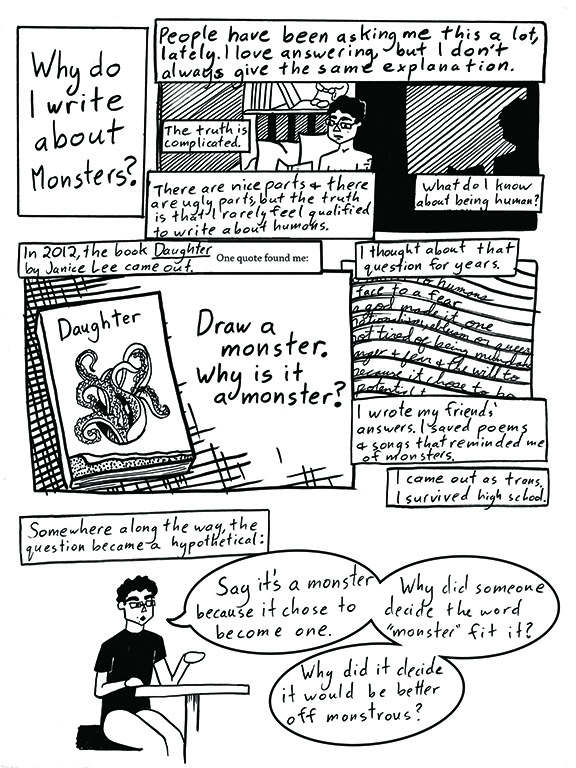 Why do
I write
about
Monsters?
People have been asking me this a lot,
lately. I love answering, but I don't
always give the same explanation.
The truth is
complicated.
There are nice parts & there
are ugly parts, but the truth
is that I rarely feel qualified
to write about humans.
What do I know
about being human?
In 2012, the book Daughter
by Janice Lee came out.
One quote found me:
Daughter
Draw a
monster.
Why is it
a monster?
I thought about that
question for years.
to humans
face to a fear
a god made it one
not tired of being
anger & fear & the will to
because it chose to be
potential
I wrote my friends'
answers. I saved poems
& songs that reminded me
of monsters.
I came out as trans.
I survived high school.
Somewhere along the way, the
question became a hypothetical:
Say it's a monster
because it chose to
become one.
Why did someone
decide the word
"monster" fit it?
Why did it decide
it would be better
off monstrous?